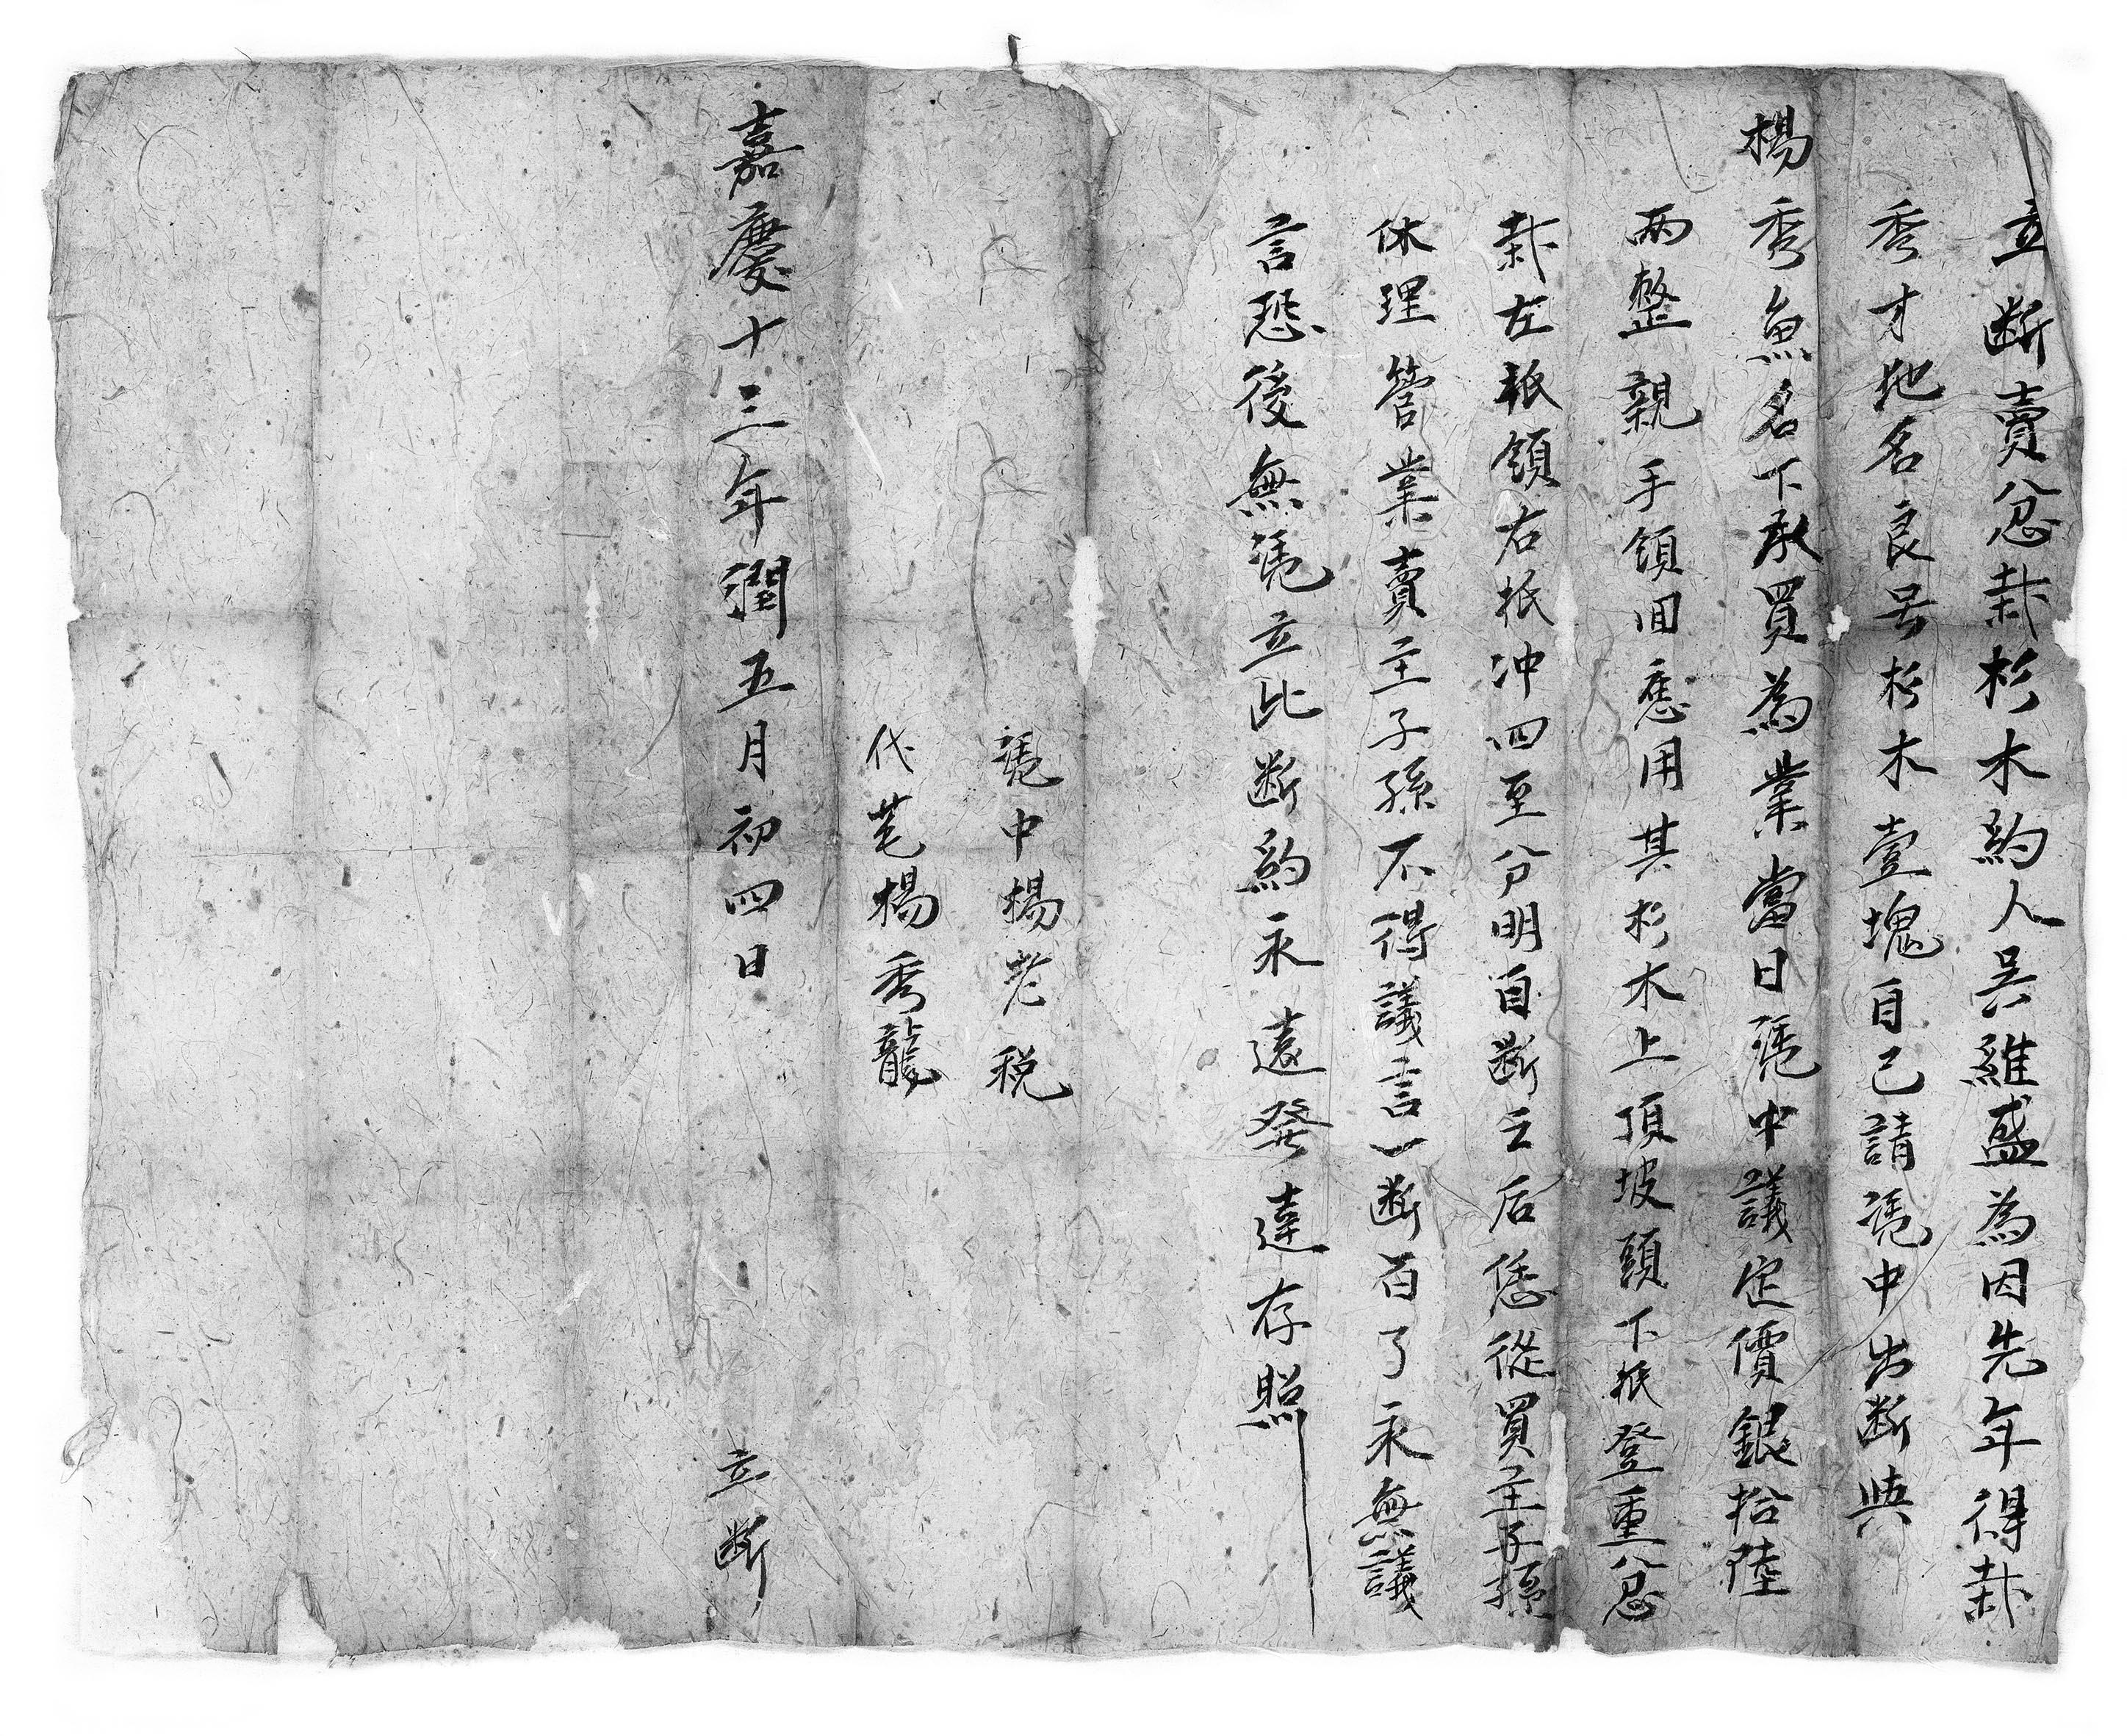 立断賣忿栽杉木約人吳維盛為因先年得栽
秀才地名良号杉木壹塊自己請凴中出断與
楊秀魚名下承買為業當日凴中議定價銀拾陸
兩整親手領回應用其杉木上頂坡頭下抵登重忿
栽左抵領右抵冲四至分明自断之后恁從買主子孫
休理管業賣主子孫不得議言一断百了永無議
言恐後無凴立此断約永遠發達存照
凴中楊老税
代笔楊秀龍
嘉慶十三年潤五月初四日 立断